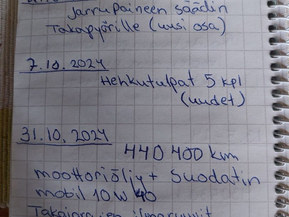 Jarrupaineen säädin
Takapyörille (uusi osa)
7.10.2024
Hehkutulpat 5 kpl
(uudet)
31.10.2024
440 400 km
moottoriöljy + Suodatin
mobil 10W40